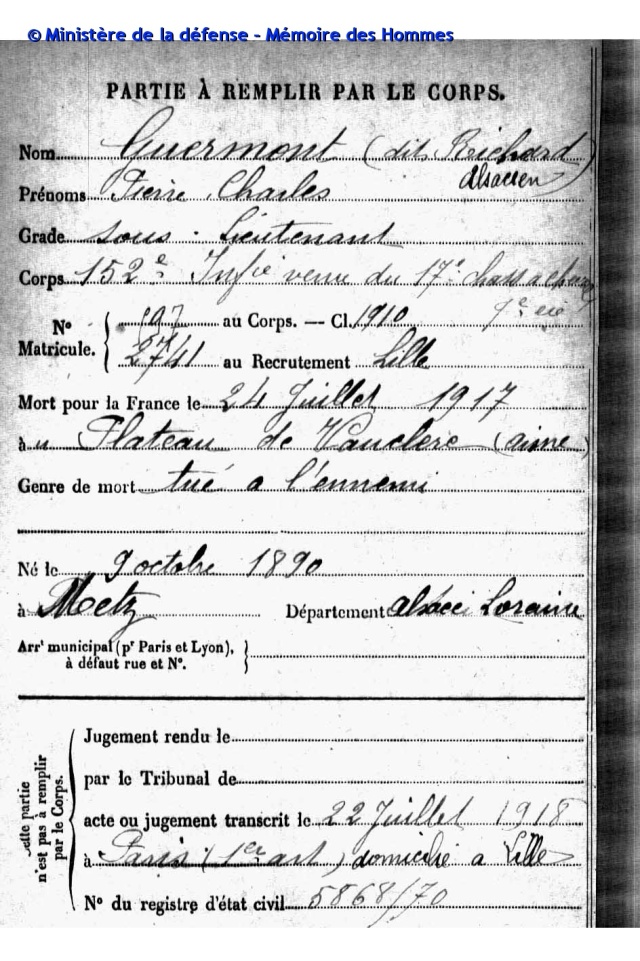 © Ministère de la défense - Mémoire des Hommes
PARTIE À REMPLIR PAR LE CORPS.
Nom Guermont (dit Reichard)
Alsacien
Prénoms Pierre Charles
Grade sous-Lieutenant
Corps 152e Infie venu du 17e chass a cheval
N° Matricule. 197 au Corps. — Cl. 1910
2741 au Recrutement Lille
Mort pour la France le 24 Juillet 1917
à u Plateau de Vauclerc (aisne)
Genre de mort tué a l'ennemi
Né le 9 octobre 1890
à Metz Département alsace Loraine
Arrt municipal (pr Paris et Lyon),
à défaut rue et N°.
cette partie n'est pas à remplir par le Corps.
Jugement rendu le
par le Tribunal de
acte ou jugement transcrit le 22 Juillet 1918
à Paris (1er art) domicilié a Lille
N° du registre d'état civil 5868/70